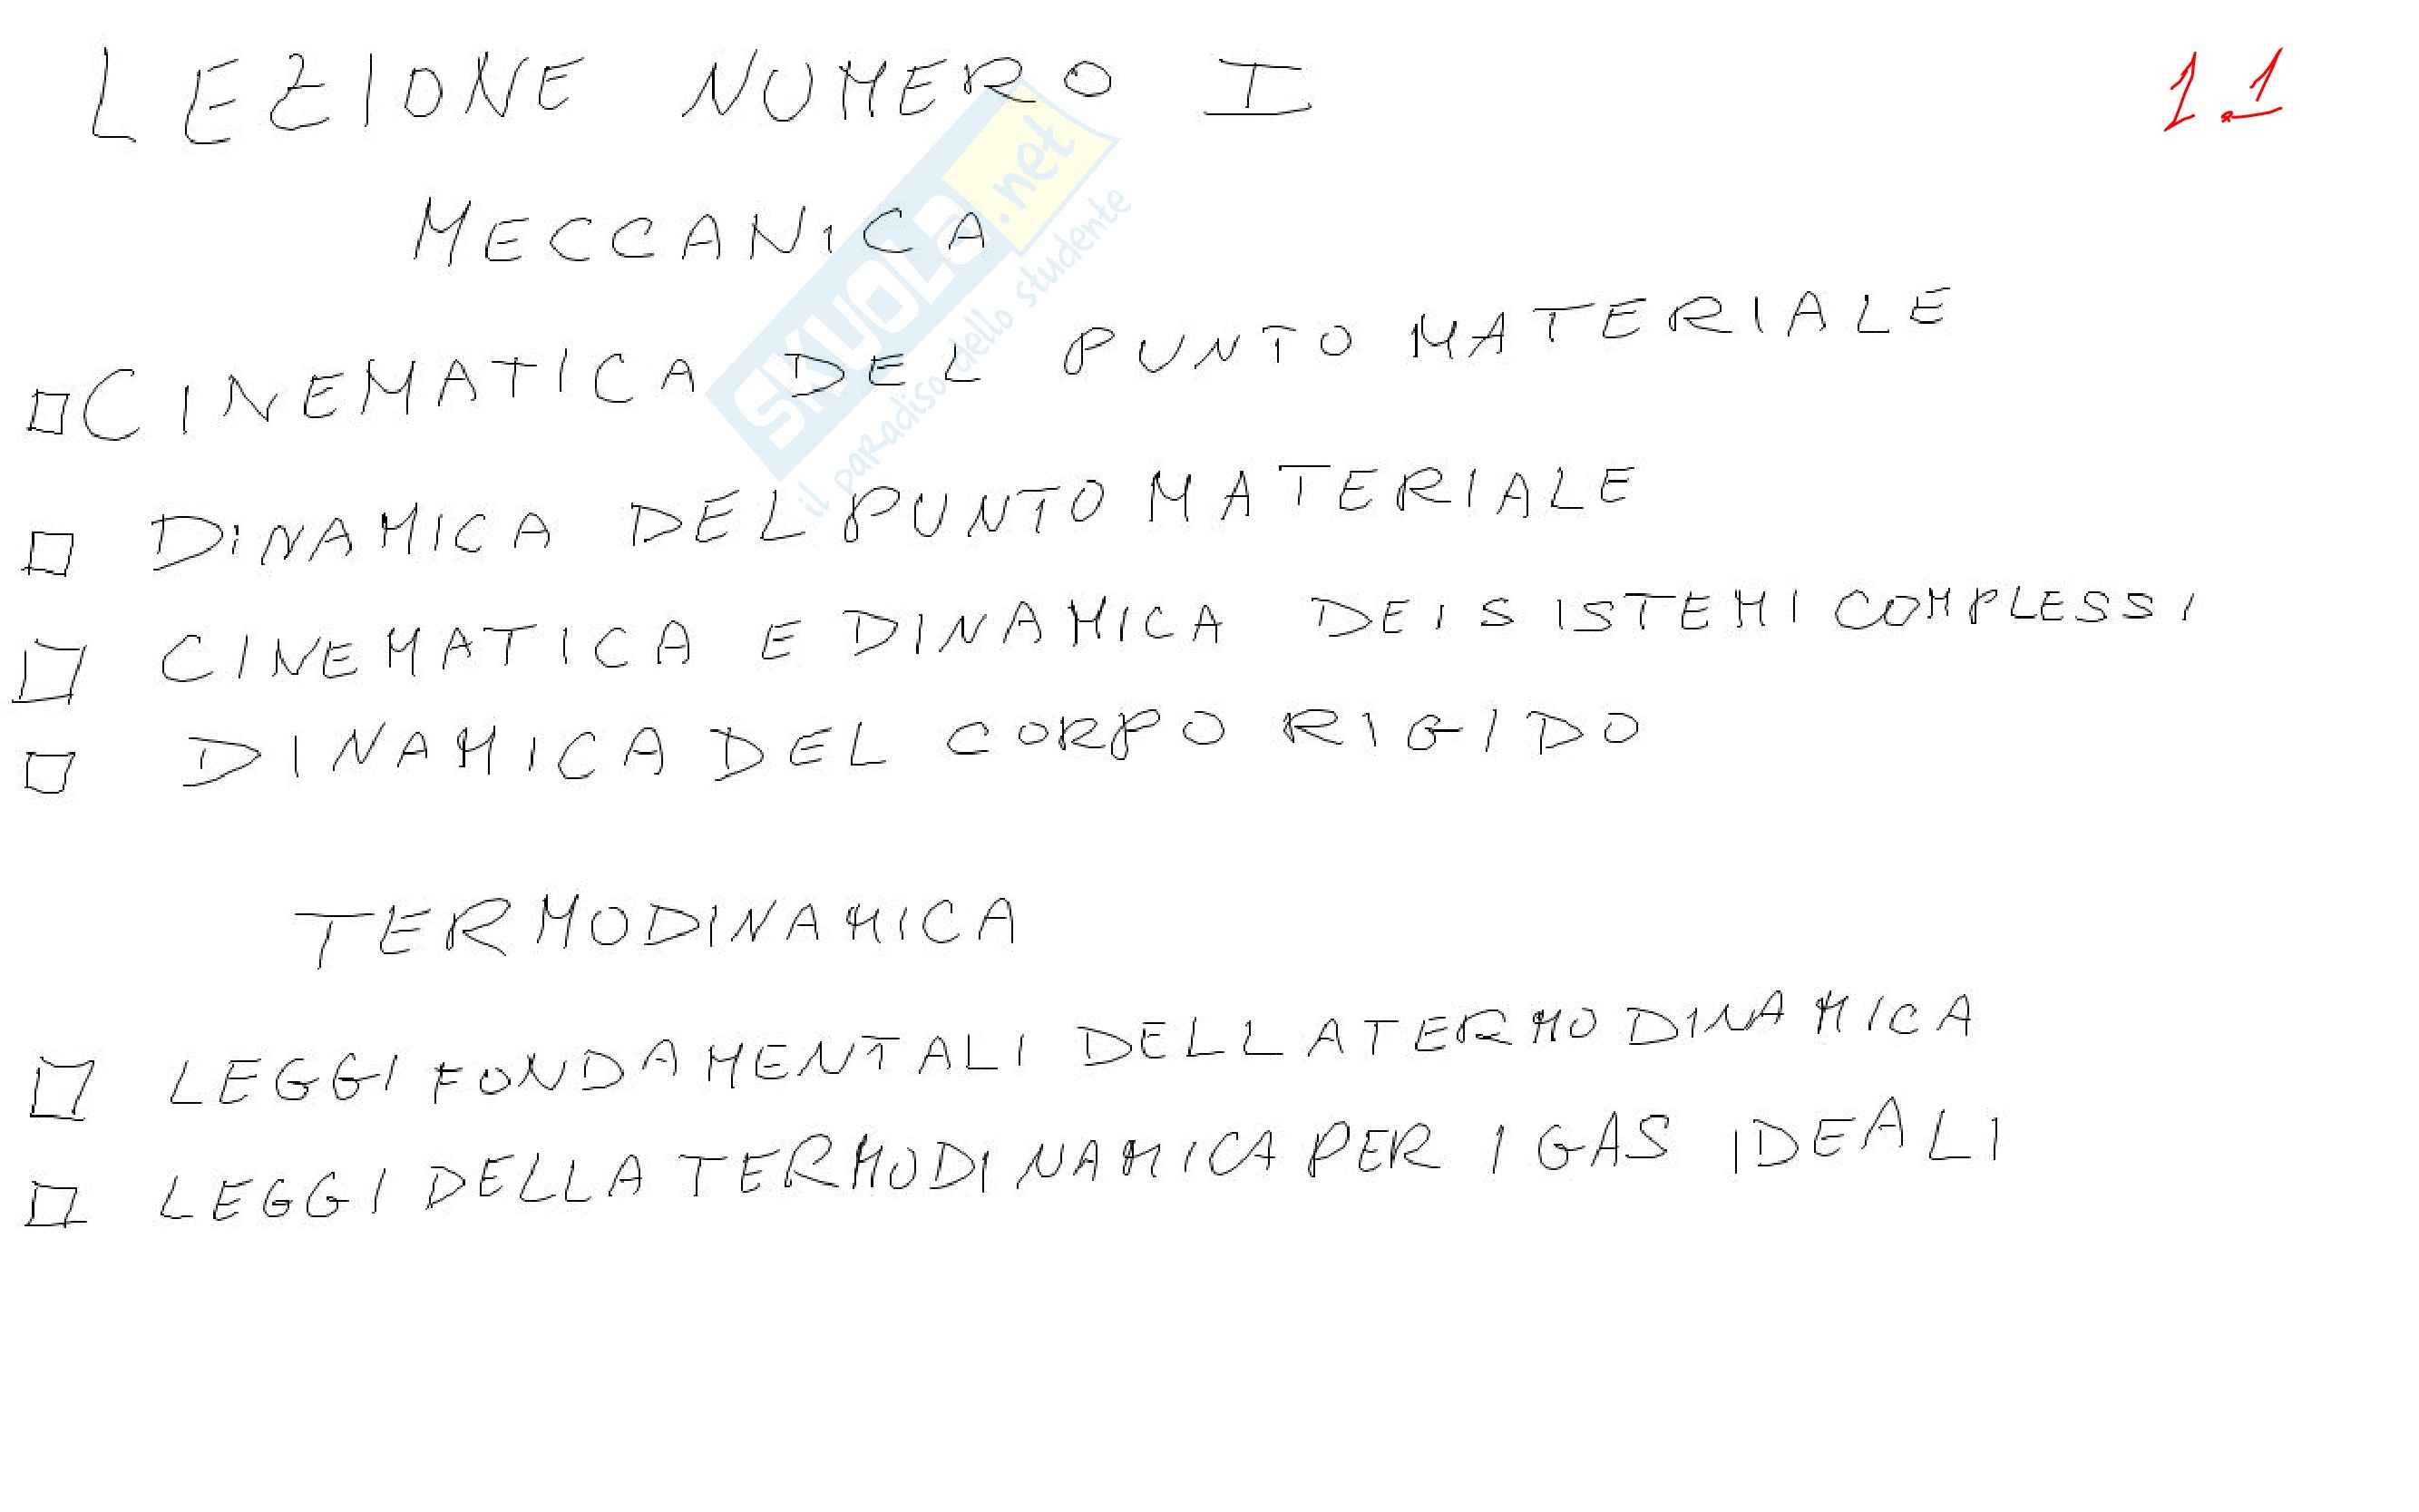 LEZIONE NUMERO I 1.1
MECCANICA
CINEMATICA DEL PUNTO MATERIALE
DINAMICA DEL PUNTO MATERIALE
CINEMATICA E DINAMICA DEI SISTEMI COMPLESSI
DINAMICA DEL CORPO RIGIDO
TERMODINAMICA
LEGGI FONDAMENTALI DELLA TERMODINAMICA
LEGGI DELLA TERMODINAMICA PER I GAS IDEALI
SKUOLa.net
il paRadiso dello studente